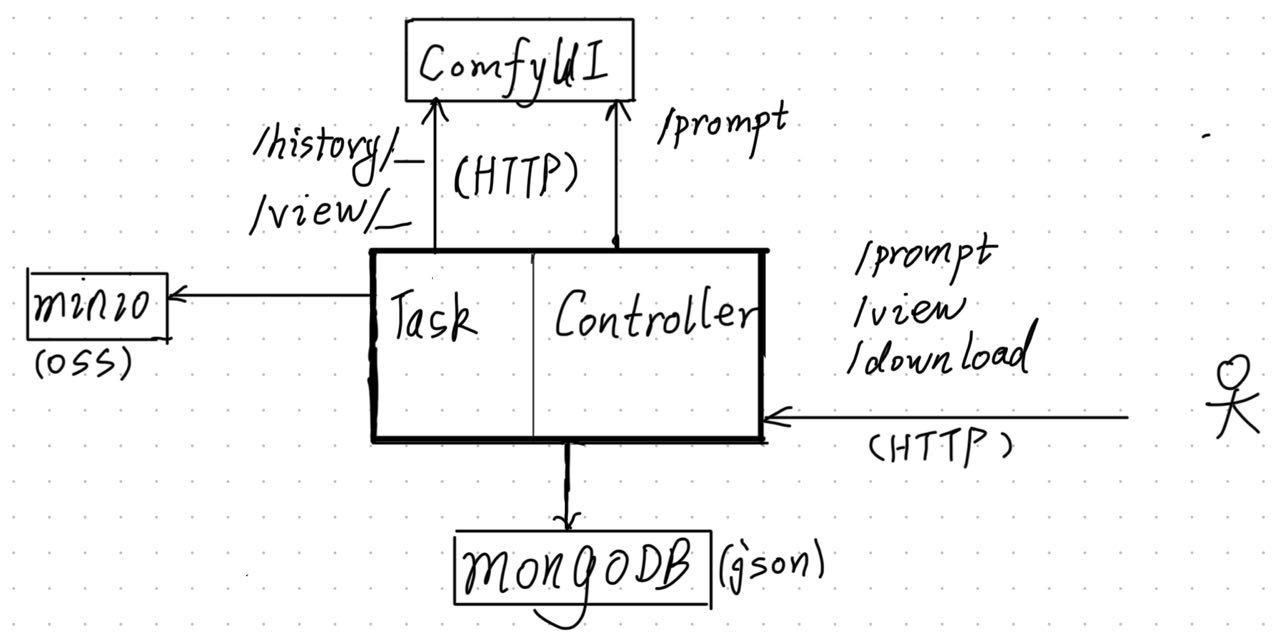 ComfyUI
/history/_
/view/_
(HTTP)
/prompt
minio
(OSS)
Task
Controller
/prompt
/view
/download
(HTTP)
mongoDB
(json)